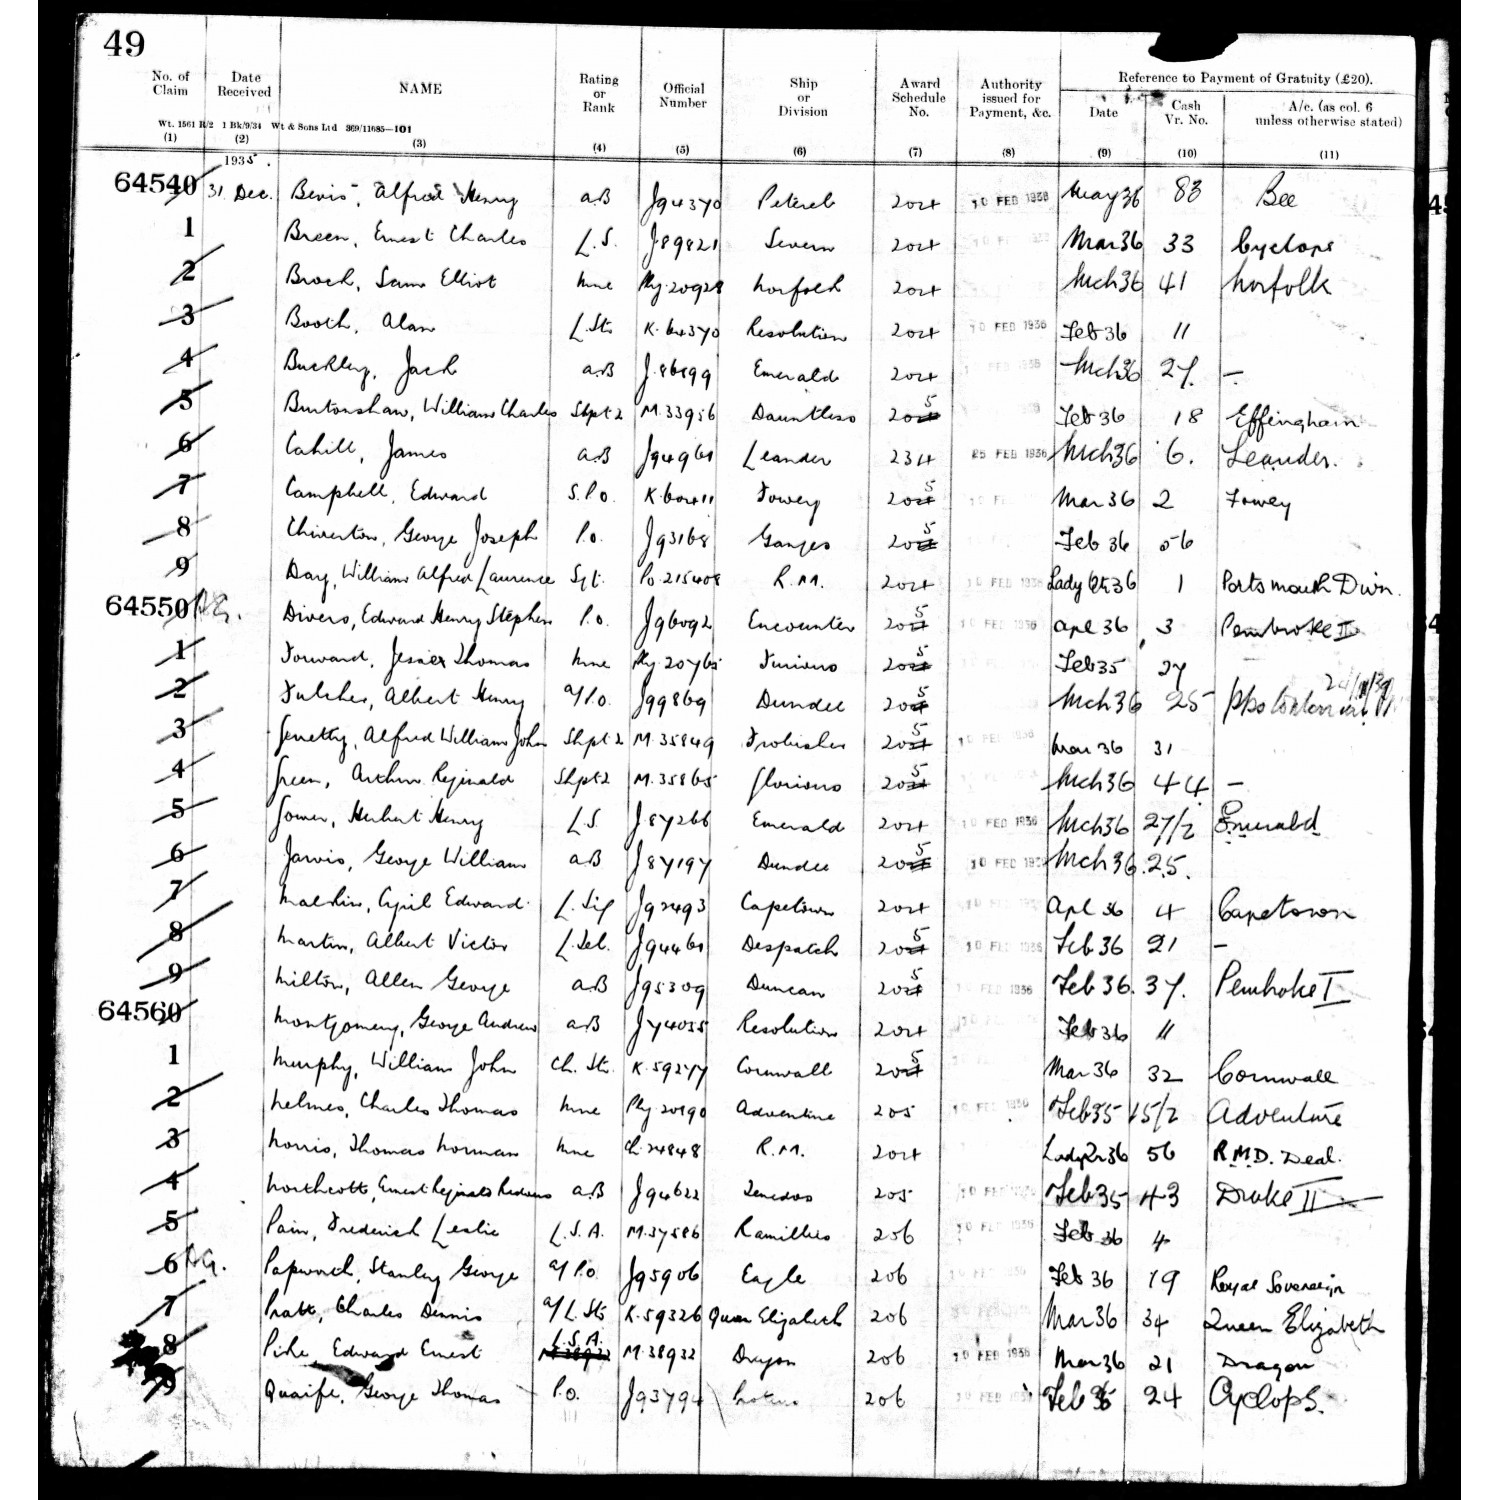 49
No. of Claim Date Received NAME Rating or Rank Official Number Ship or Division Award Schedule No. Authority issued for Payment, &c. Reference to Payment of Gratuity (£20).
Date Cash Vr. No. A/c. (as col. 6 unless otherwise stated)
Wt. 1561 R/2 1 Bk/9/34 Wt & Sons Ltd 369/11685—101
(1) (2) (3) (4) (5) (6) (7) (8) (9) (10) (11)
1935.
64540 31 Dec. Bevis, Alfred Henry a.B J94370 Peterel 204 10 FEB 1936 May 36 83 Bee
1 Breen, Ernest Charles L.S. J.89821 Severn 204 Mar 36 33 Cyclops
2 Brock, Sam Elliot Mne Ply.20928 Norfolk 204 Mch 36 41 Norfolk
3 Booth, Alan L.Sto K.64370 Resolution 204 10 FEB 1936 Feb 36 11
4 Buckley, Jack a.B J.86899 Emerald 204 Mch 36 27. –
5 Burtonshaw, William Charles Shpt 2 M.33956 Dauntless 205 Feb 36 18 Effingham
6 Cahill, James a.B J94961 Leander 234 25 FEB 1936 Mch 36 6. Leander.
7 Campbell, Edward S.P.O. K.60411 Fowey 205 Mar 36 2 Fowey
8 Chiverton, George Joseph P.O. J93168 Ganges 205 Feb 36 56
9 Day, William Alfred Laurence Sgt. Po.215408 R.M. 204 10 FEB 1936 Lady Qr 36 1 Portsmouth Divn.
64550 Divers, Edward Henry Stephen P.O. J96092 Encounter 205 10 FEB 1936 Apl 36 3 Pembroke II
1 Forward, Jesse Thomas Mne Ply.20765 Furious 205 Feb 35 27
2 Fulcher, Albert Henry a/P.O. J99869 Dundee 205 Mch 36 25
3 Genethy, Alfred William John Shpt 2 M.35849 Frobisher 205 10 FEB 1936 Mar 36 31
4 Green, Arthur Reginald Shpt 2 M.35865 Glorious 205 Mch 36 44 –
5 Gower, Herbert Henry L.S. J.87266 Emerald 204 10 FEB 1936 Mch 36 27/2 Emerald
6 Jarvis, George William a.B J87197 Dundee 205 10 FEB 1936 Mch 36 25.
7 Machin, Cyril Edward L.Sig J92493 Capetown 204 Apl 36 4 Capetown
8 Martin, Albert Victor L.Tel. J94461 Despatch 205 10 FEB 1936 Feb 36 21 –
9 Milton, Allen George a.B J95309 Duncan 205 10 FEB 1936 Feb 36. 37. Pembroke I
64560 Montgomery, George Andrew a.B J74055 Resolution 204 Feb 36 11
1 Murphy, William John Ch. Sto. K.59277 Cornwall 205 Mar 36 32 Cornwall
2 Nelmes, Charles Thomas Mne Ply.20890 Adventure 205 10 FEB 1936 Feb 35 15/2 Adventure
3 Norris, Thomas Norman Mne Ch.24848 R.M. 204 Lady Qr 36 56 R.M.D. Deal.
4 Northcott, Ernest Reginald a.B J94622 Tenedos 205 10 FEB 1936 Feb 35 43 Drake II
5 Pain, Frederick Leslie L.S.A. M.37586 Ramillies 206 10 FEB 1936 Feb 36 4
6 Papworth, Stanley George a/P.O. J95906 Eagle 206 Feb 36 19 Royal Sovereign
7 Pratt, Charles Dennis a/L.Sto K.59326 Queen Elizabeth 206 Mar 36 34 Queen Elizabeth
8 Pike Edward Ernest L.S.A. M.38932 Dragon 206 10 FEB 1936 Mar 36 21 Dragon
9 Quaife, George Thomas P.O. J93794 206 10 FEB Feb 36 24 Cyclops.